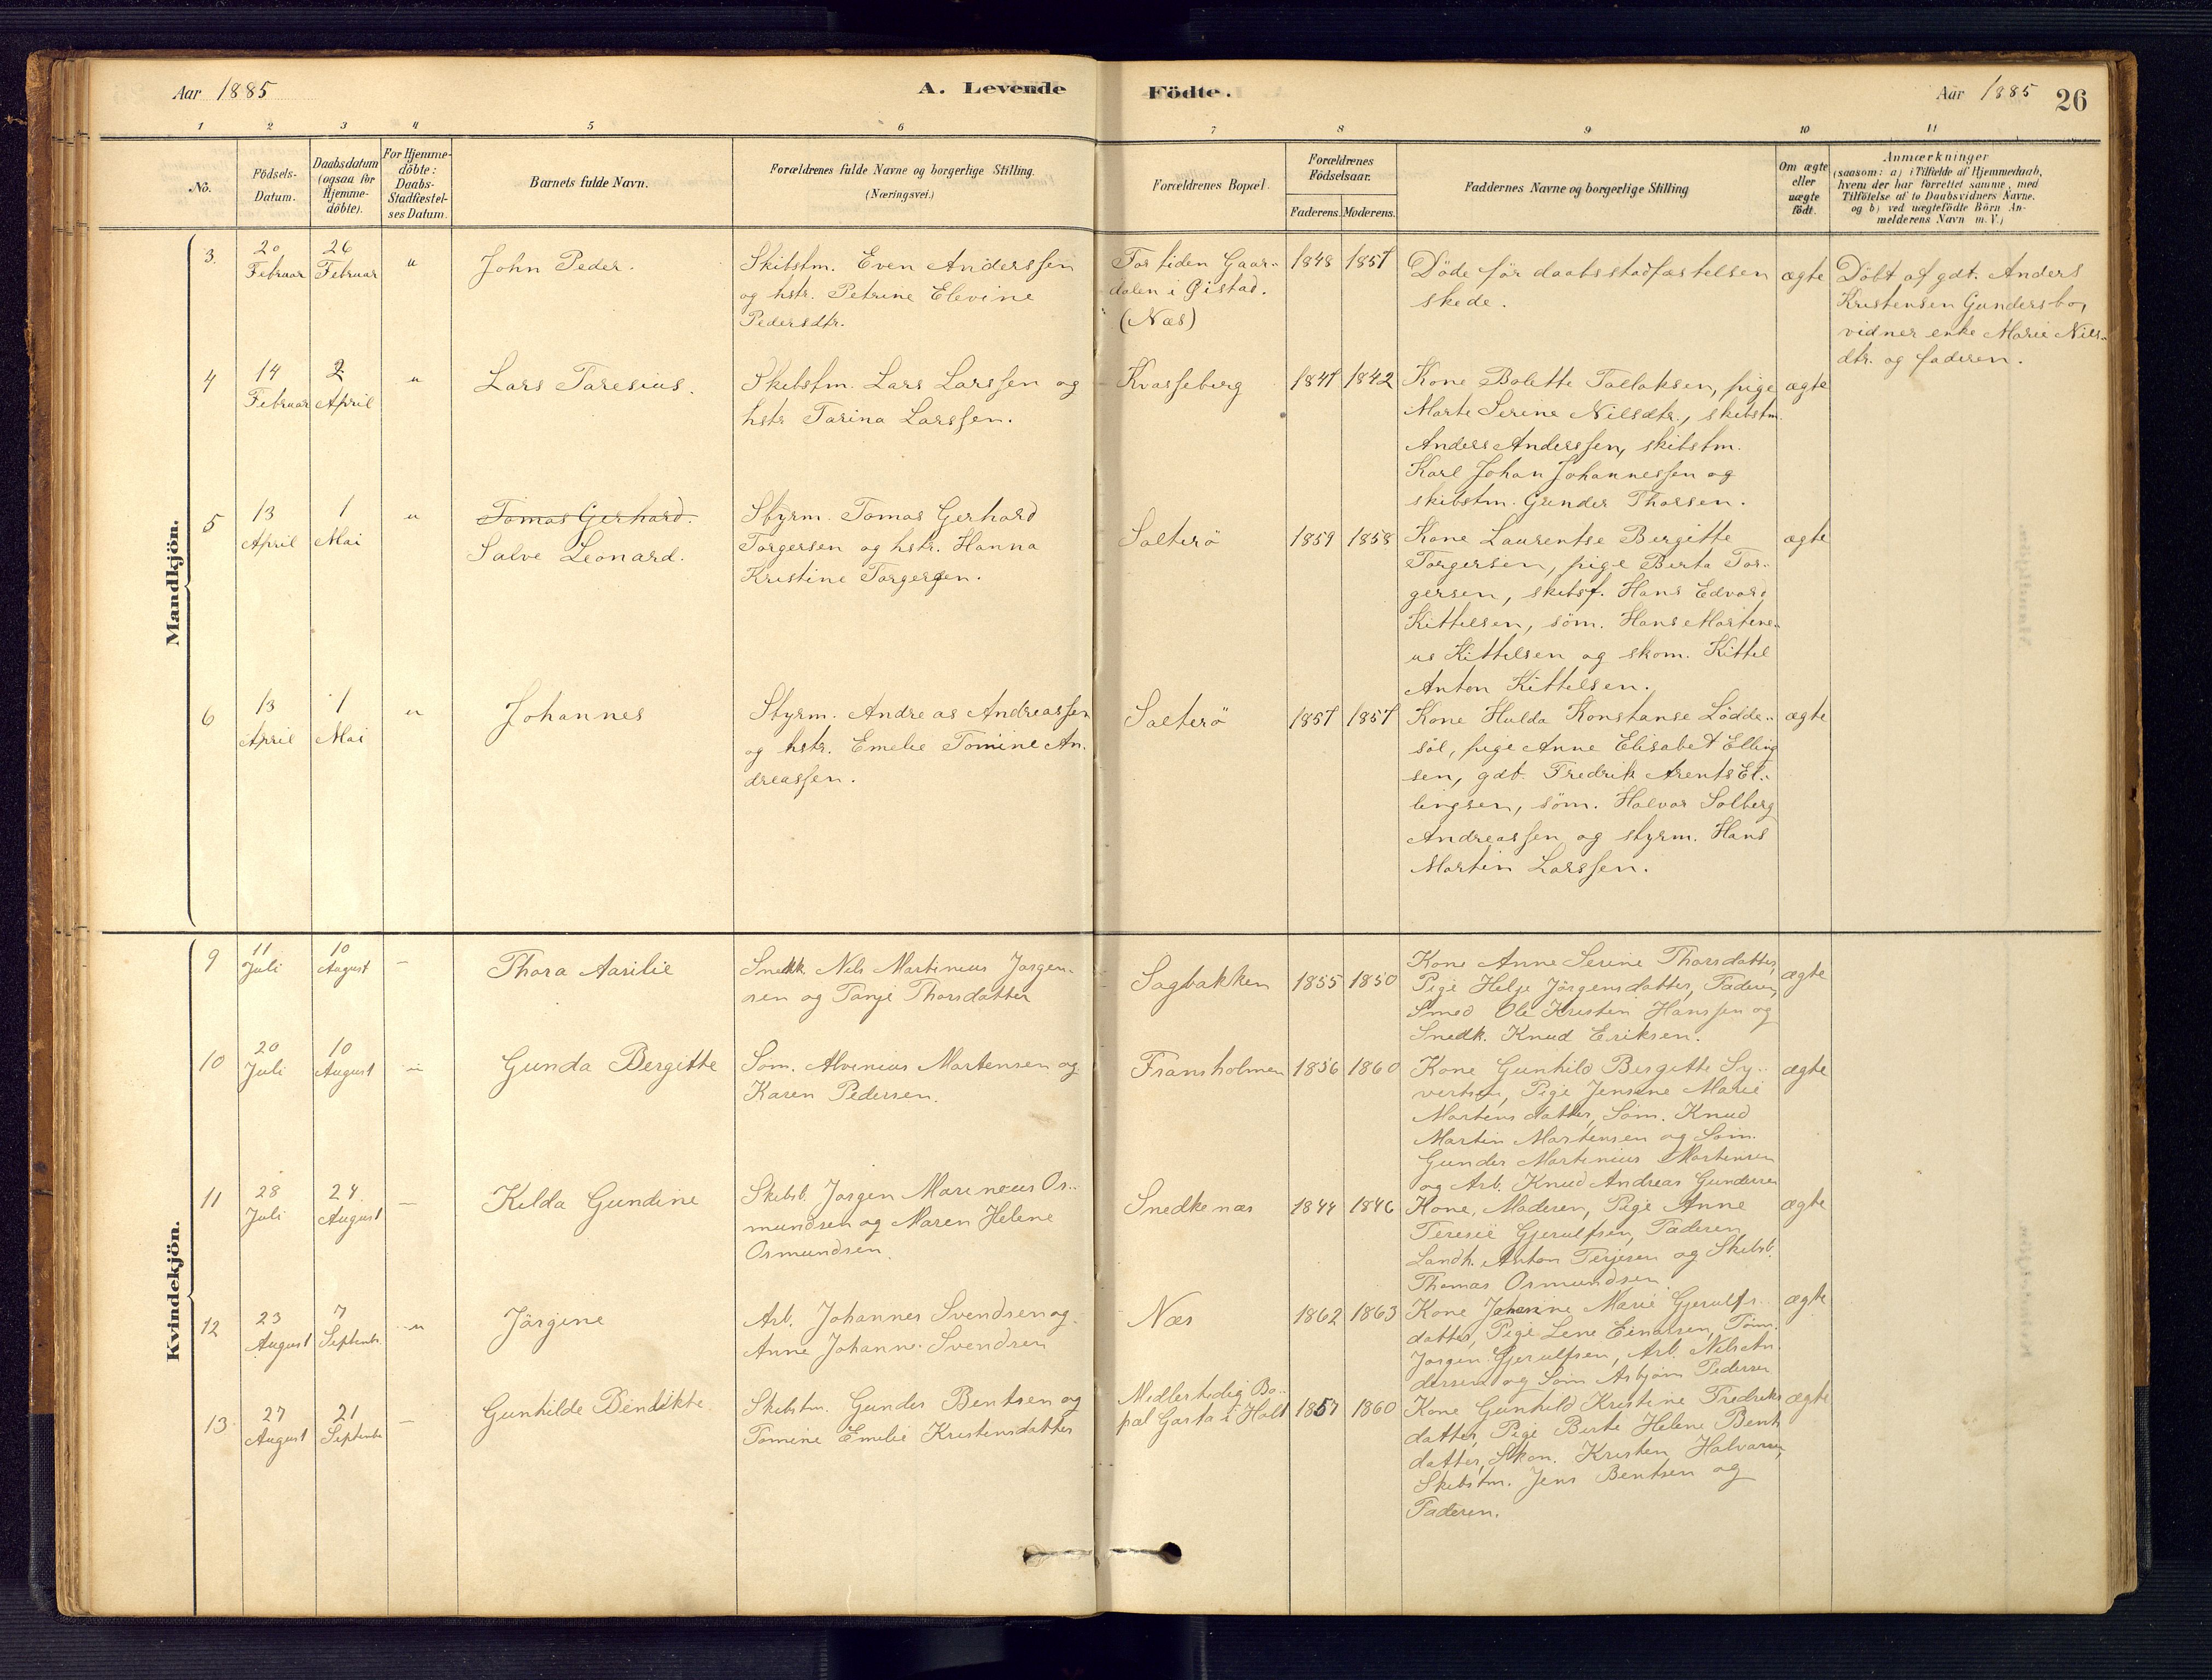 Aar 1885
A. Levende
Födte.
Aar 1885
26
1 2 3 4 5 6 7 8 9 10 11
No.
Födsels-
Datum.
Daabsdatum
(ogsaa for
Hjemme-
döbte).
For Hjemme-
döbte:
Daabs-
Stadfæstel-
ses Datum.
Barnets fulde Navn.
Forældrenes fulde Navne og borgerlige Stilling.
(Næringsvei.)
Forældrenes Bopæl.
Forældrenes
Födselsaar.
Faderens. Moderens.
Faddernes Navne og borgerlige Stilling
Om ægte
eller
uægte
födt.
Anmærkninger
(saasom: a) i Tilfælde af Hjemmedaab,
hvem der har forrettet samme, med
Tilföielse af to Daabsvidners Navne.
og b) ved uægtefödte Börn An-
melderens Navn m. V.)
Mandkjön.
3.
20
Februar
26
Februar
"
John Peder.
Skibstm. Even Anderssen
og hstr. Petrine Elevine
Pedersdtr.
For tiden Gaar-
dalen i Øistad.
(Næs)
1848
1857
Døde før daabsstadfæstelsen
skede.
ægte
Döbt af gdt. Anders
Kristensen Gundersbo,
vidner enke Marie Niels-
dtr. og faderen.
4
14
Februar
2
April
"
Lars Taresius.
Skibstm. Lars Larssen og
hstr Tarina Larssen.
Kvasseberg
1847
1842
Kone Bolette Tallaksen, pige
Marte Serine Nilsdtr., skibstm.
Anders Anderssen, skibstm.
Karl Johan Johannessen og
skibstm. Gunder Thorsen.
ægte
5
13
April
1
Mai
"
Tomas Gerhard.
Salve Leonard.
Styrm. Tomas Gerhard
Torgersen og hstr. Hanna
Kristine Torgersen.
Salterö
1859
1858
Kone Laurentse Birgitte
Torgersen, pige Berta Tor-
gersen, skibsf. Hans Edvard
Kittelsen, söm. Hans Martine-
us Kittelsen og skom. Kittel
Anton Kittelsen.
ægte
6
13
April
1
Mai
"
Johannes
Styrm. Andreas Andreassen
og hstr. Emelie Tomine An-
dreassen.
Salterö
1857
1857
Kone Hulda Konstanse Lödde-
söl, pige Anne Elisabet Elling
sen, gdt. Fredrik Arents El-
lingsen, söm. Halvor Solberg
Andreassen og styrm. Hans
Martin Larssen.
ægte
Kvindekjön.
9
11
Juli
10
August
-
Thora Aasilie
Snedk. Nils Martinius Jorgen-
sen og Tanje Thorsdatter
Sagbakken
1855
1850
Kone Anne Serine Thorsdatter,
Pige Helje Jörgensdatter, Faderen,
Smed Ole Kristin Hanssen og
Snedk. Knud Eriksen.
ægte
10
20
Juli
10
August
"
Gunda Bergitte
Söm. Alvinius Martensen og
Karen Pedersen.
Fransholmen
1856
1860
Kone Gunhild Birgitte Sy-
vertsen, Pige Jensine Marie
Martinsdatter, Söm. Knud
Martin Martensen og Söm.
Gunder Martinius Martensen
og Arb. Knud Andreas Gundersen
ægte
11
28
Juli
24
August
-
Kilda Gundine
Skibsb. Jorgen Marineus Os-
mundsen og Maren Helene
Osmundsen.
Snedkenæs
1844
1846
Kone, Moderen, Pige Anne
Teresie Gjerulfsen, Faderen,
Landh. Anton Terjesen og Skibsb.
Thomas Osmundsen.
ægte
12
23
August
7
Septembr
"
Jörgine
Arb. Johannes Svendsen og
Anne Johanne Svendsen
Næs
1862
1863
Kone Johanne Marie Gjerulfs-
datter, Pige Lene Einarsen, Töm.
Jorgen Gjerulfsen, Arb. Nils An-
dersen og Söm Asbjörn Pedersen
ægte
13
27
August
21
Septembr
-
Gunhilde Bendikte
Skibstm. Gunder Bentsen og
Tomine Emilie Kristensdatter
Midlertidig Bo-
pæl Garta i Holt
1857
1860
Kone Gunhild Kristine Fredriks
datter, Pige Birte Helene Bent
datter, Skom. Kristen Halvorsen,
Skibstm. Jens Bentsen og
Faderen.
ægte